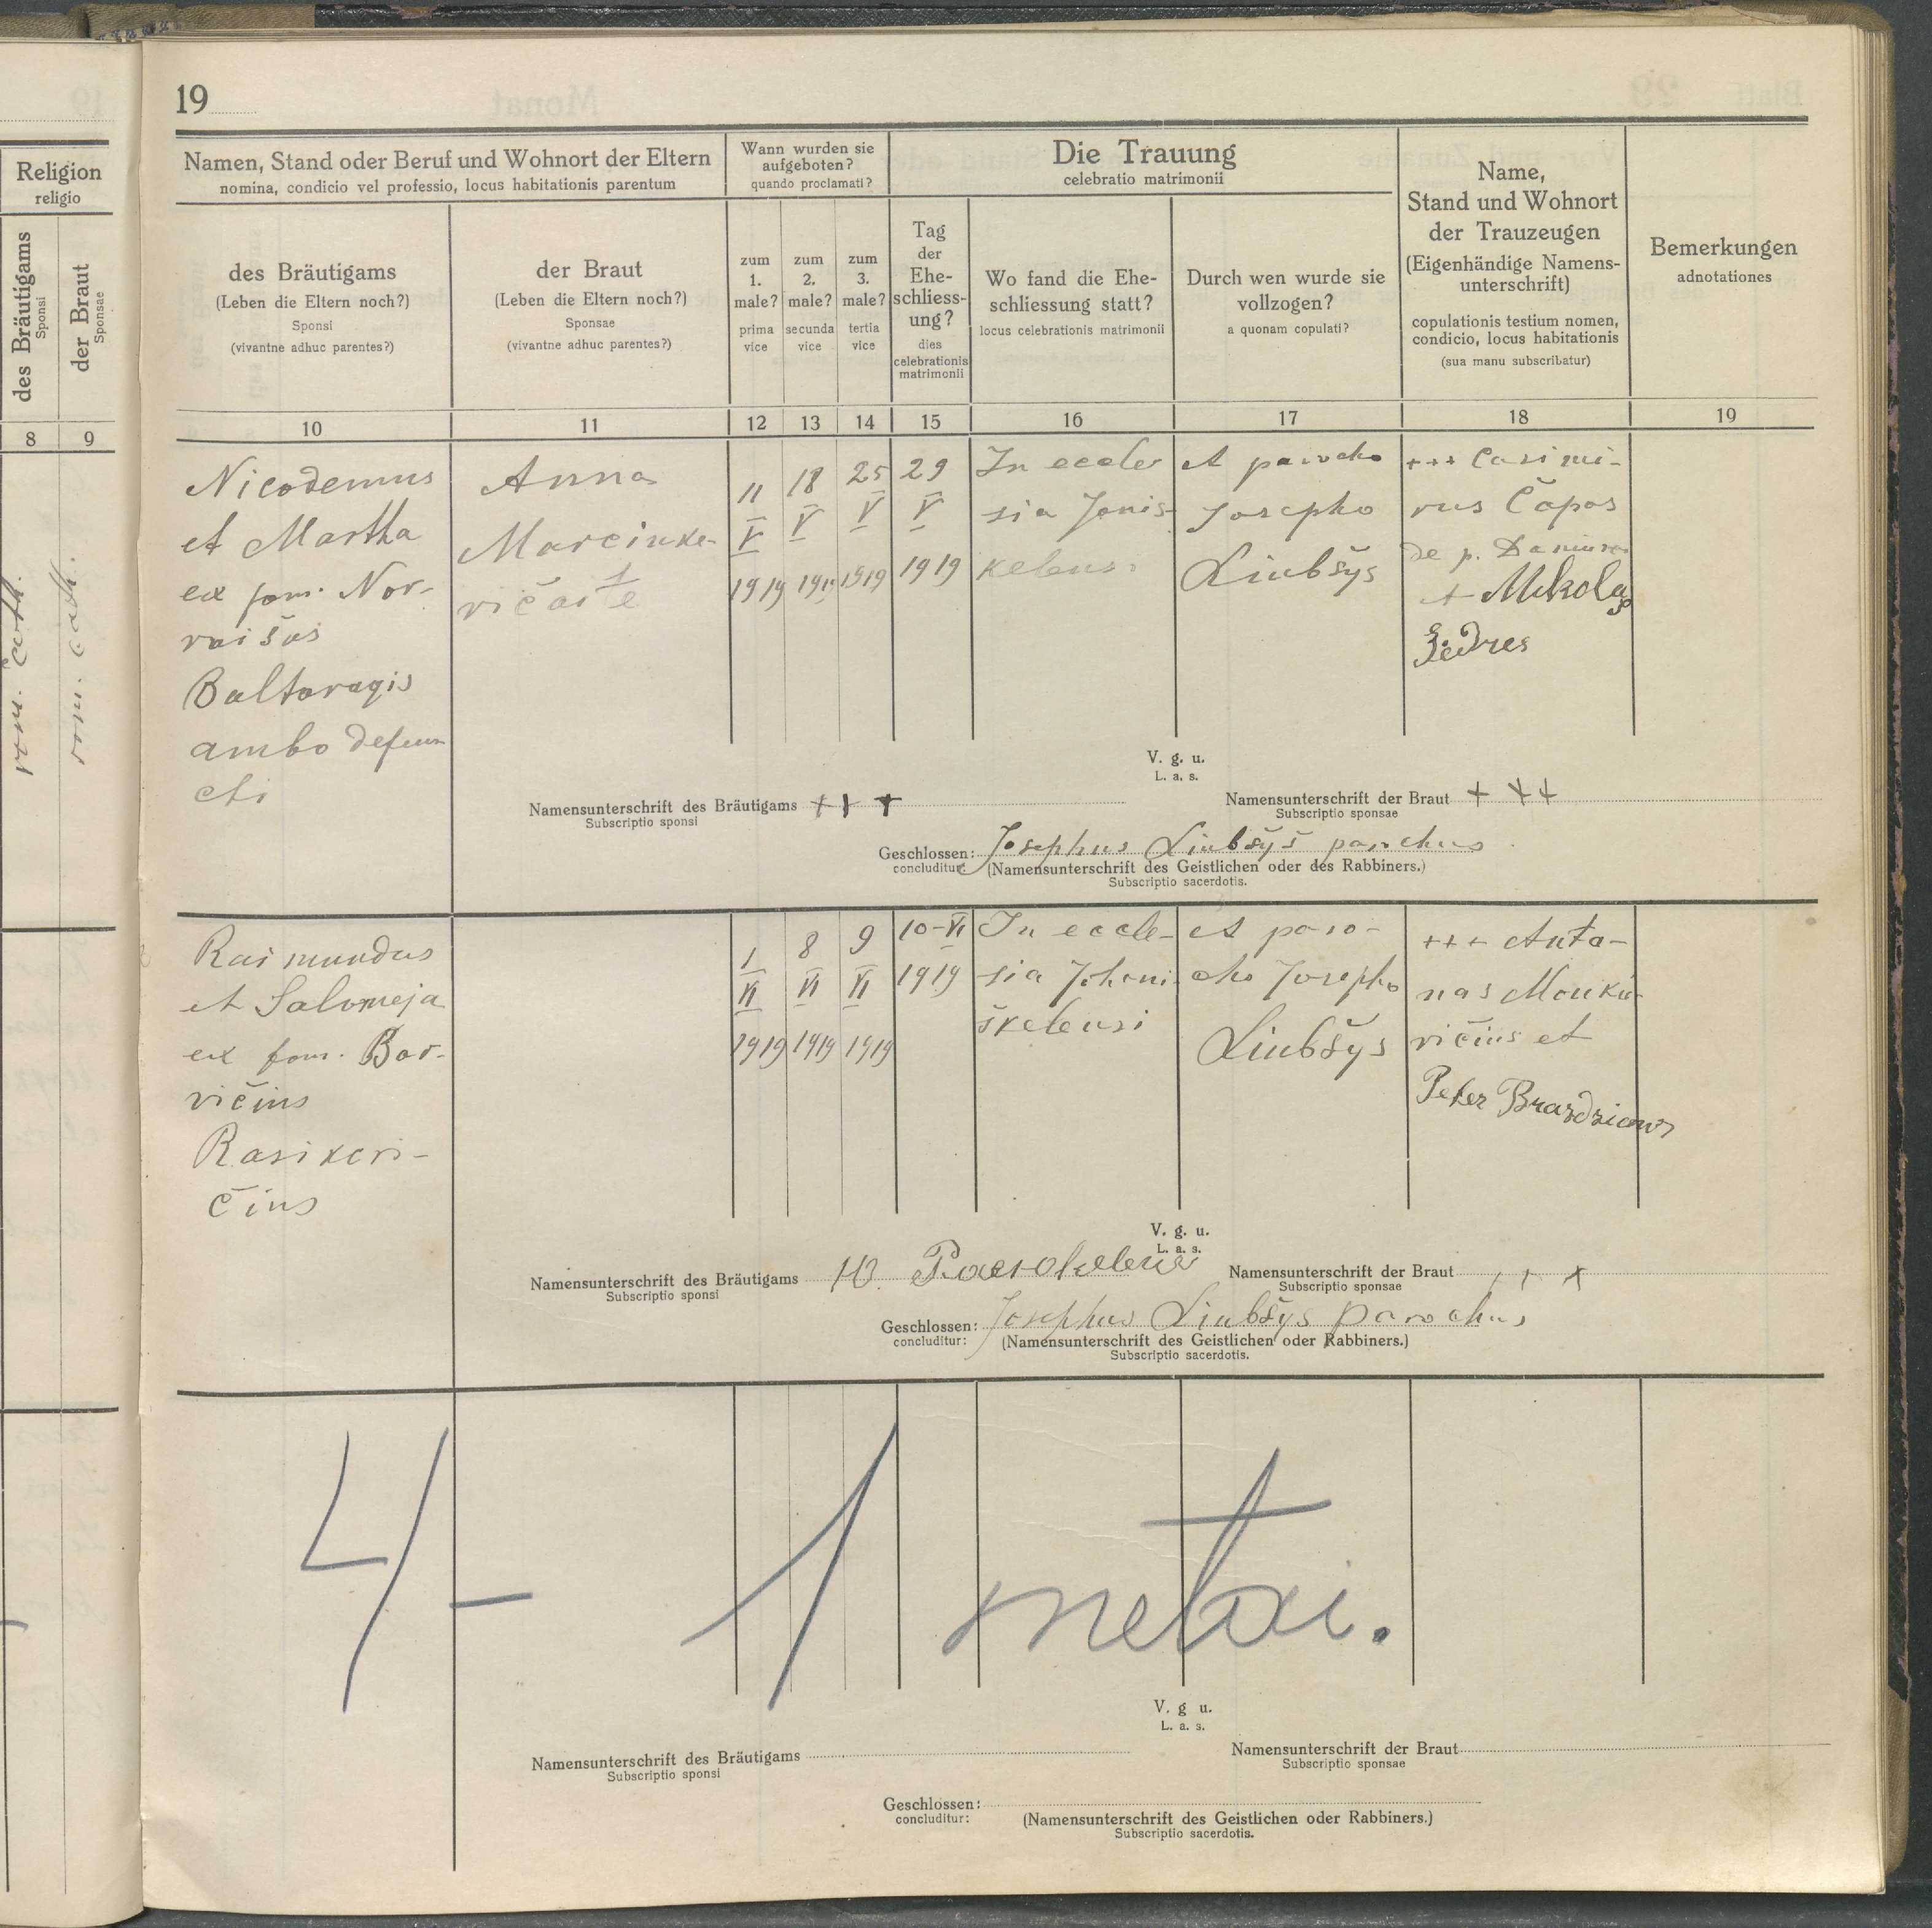 19
Religion
religio
des Bräutigams
Sponsi
der Braut
Sponsae
8
9
rom. cath.
rom. cath.
Namen, Stand oder Beruf und Wohnort der Eltern
nomina, condicio vel professio, locus habitationis parentum
Wann wurden sie
aufgeboten?
quando proclamati?
Die Trauung
celebratio matrimonii
Name,
Stand und Wohnort
der Trauzeugen
(Eigenhändige Namens-
unterschrift)
copulationis testium nomen,
condicio, locus habitationis
(sua manu subscribatur)
Bemerkungen
adnotationes
des Bräutigams
(Leben die Eltern noch?)
Sponsi
(vivantne adhuc parentes?)
der Braut
(Leben die Eltern noch?)
Sponsae
(vivantne adhuc parentes?)
zum
1.
male?
prima
vice
zum
2.
male?
secunda
vice
zum
3.
male?
tertia
vice
Tag
der
Ehe-
schliess-
ung?
dies
celebrationis
matrimonii
Wo fand die Ehe-
schliessung statt?
locus celebrationis matrimonii
Durch wen wurde sie
vollzogen?
a quonam copulati?
10
11
12
13
14
15
16
17
18
19
Nicodemus
et Martha
ex fam. Nor-
vaišas
Baltaragis
ambo defun
cti
Anna
Marcinke-
vičaite
11
V
1919
18
V
1919
25
V
1919
29
V
1919
In eccle
sia Jonis-
kelens.
A parocho
Josepho
Liubšys
+++ Casimi-
rus Čapas
de p.
+ Mikolas
Žiedres
V. g. u.
L. a. s.
Namensunterschrift des Bräutigams +++
Subscriptio sponsi
Namensunterschrift der Braut +++
Subscriptio sponsae
Geschlossen: Josephus Liubšys parochus
concluditur: (Namensunterschrift des Geistlichen oder des Rabbiners.)
Subscriptio sacerdotis.
Raimundus
et Salomeja
ex fam. Bar-
vičius
Rasikevi-
čius
1
VI
1919
8
VI
1919
9
VI
1919
10-VI
1919
In eccle-
sia Johani-
škelensi
A paro-
cho Josepho
Liubšys
+++ Anta-
nas Monke-
vičius et
Peter
V. g. u.
L. a. s.
Namensunterschrift des Bräutigams
Subscriptio sponsi
Namensunterschrift der Braut +++
Subscriptio sponsae
Geschlossen: Josephus Liubšys parochus
concluditur: (Namensunterschrift des Geistlichen oder Rabbiners.)
Subscriptio sacerdotis.
4 - 1 metai.
V. g u.
L. a. s.
Namensunterschrift des Bräutigams
Subscriptio sponsi
Namensunterschrift der Braut
Subscriptio sponsae
Geschlossen:
concluditur: (Namensunterschrift des Geistlichen oder Rabbiners.)
Subscriptio sacerdotis.